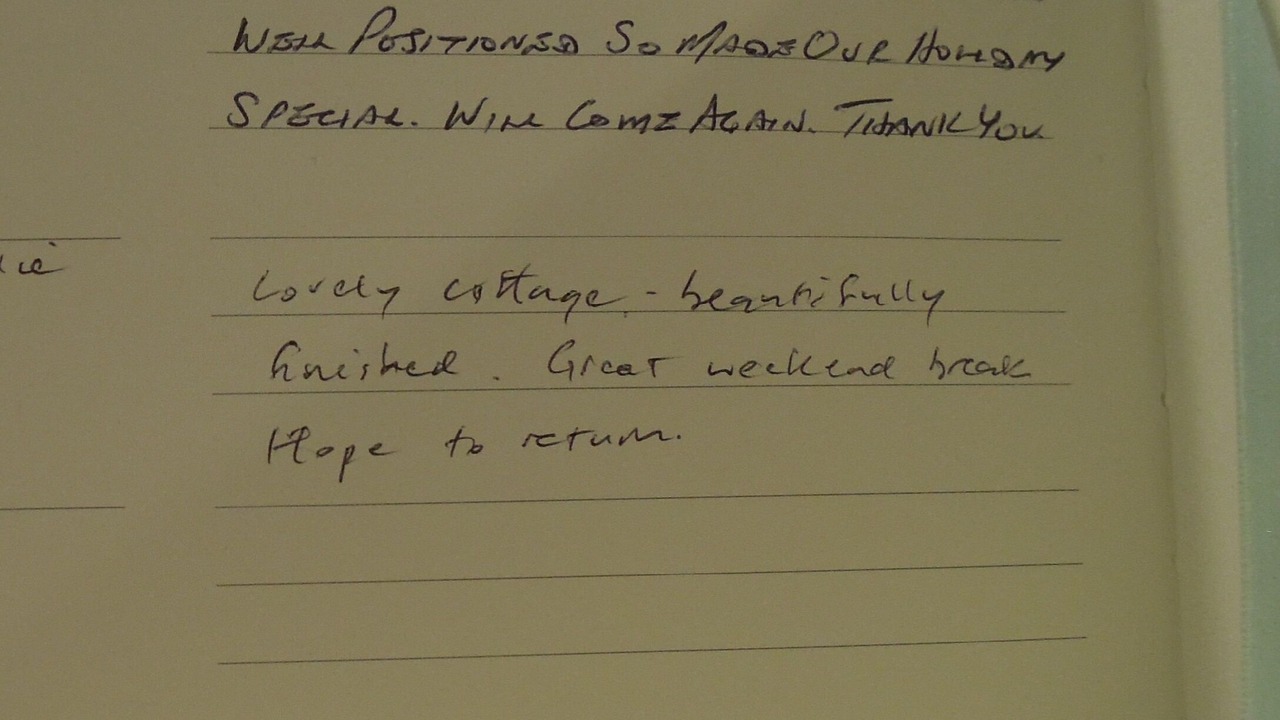 WELL POSITIONED SO MADE OUR HOLIDAY
SPECIAL. WILL COME AGAIN. THANK YOU
Lovely cottage - beautifully
finished. Great weekend break
Hope to return.